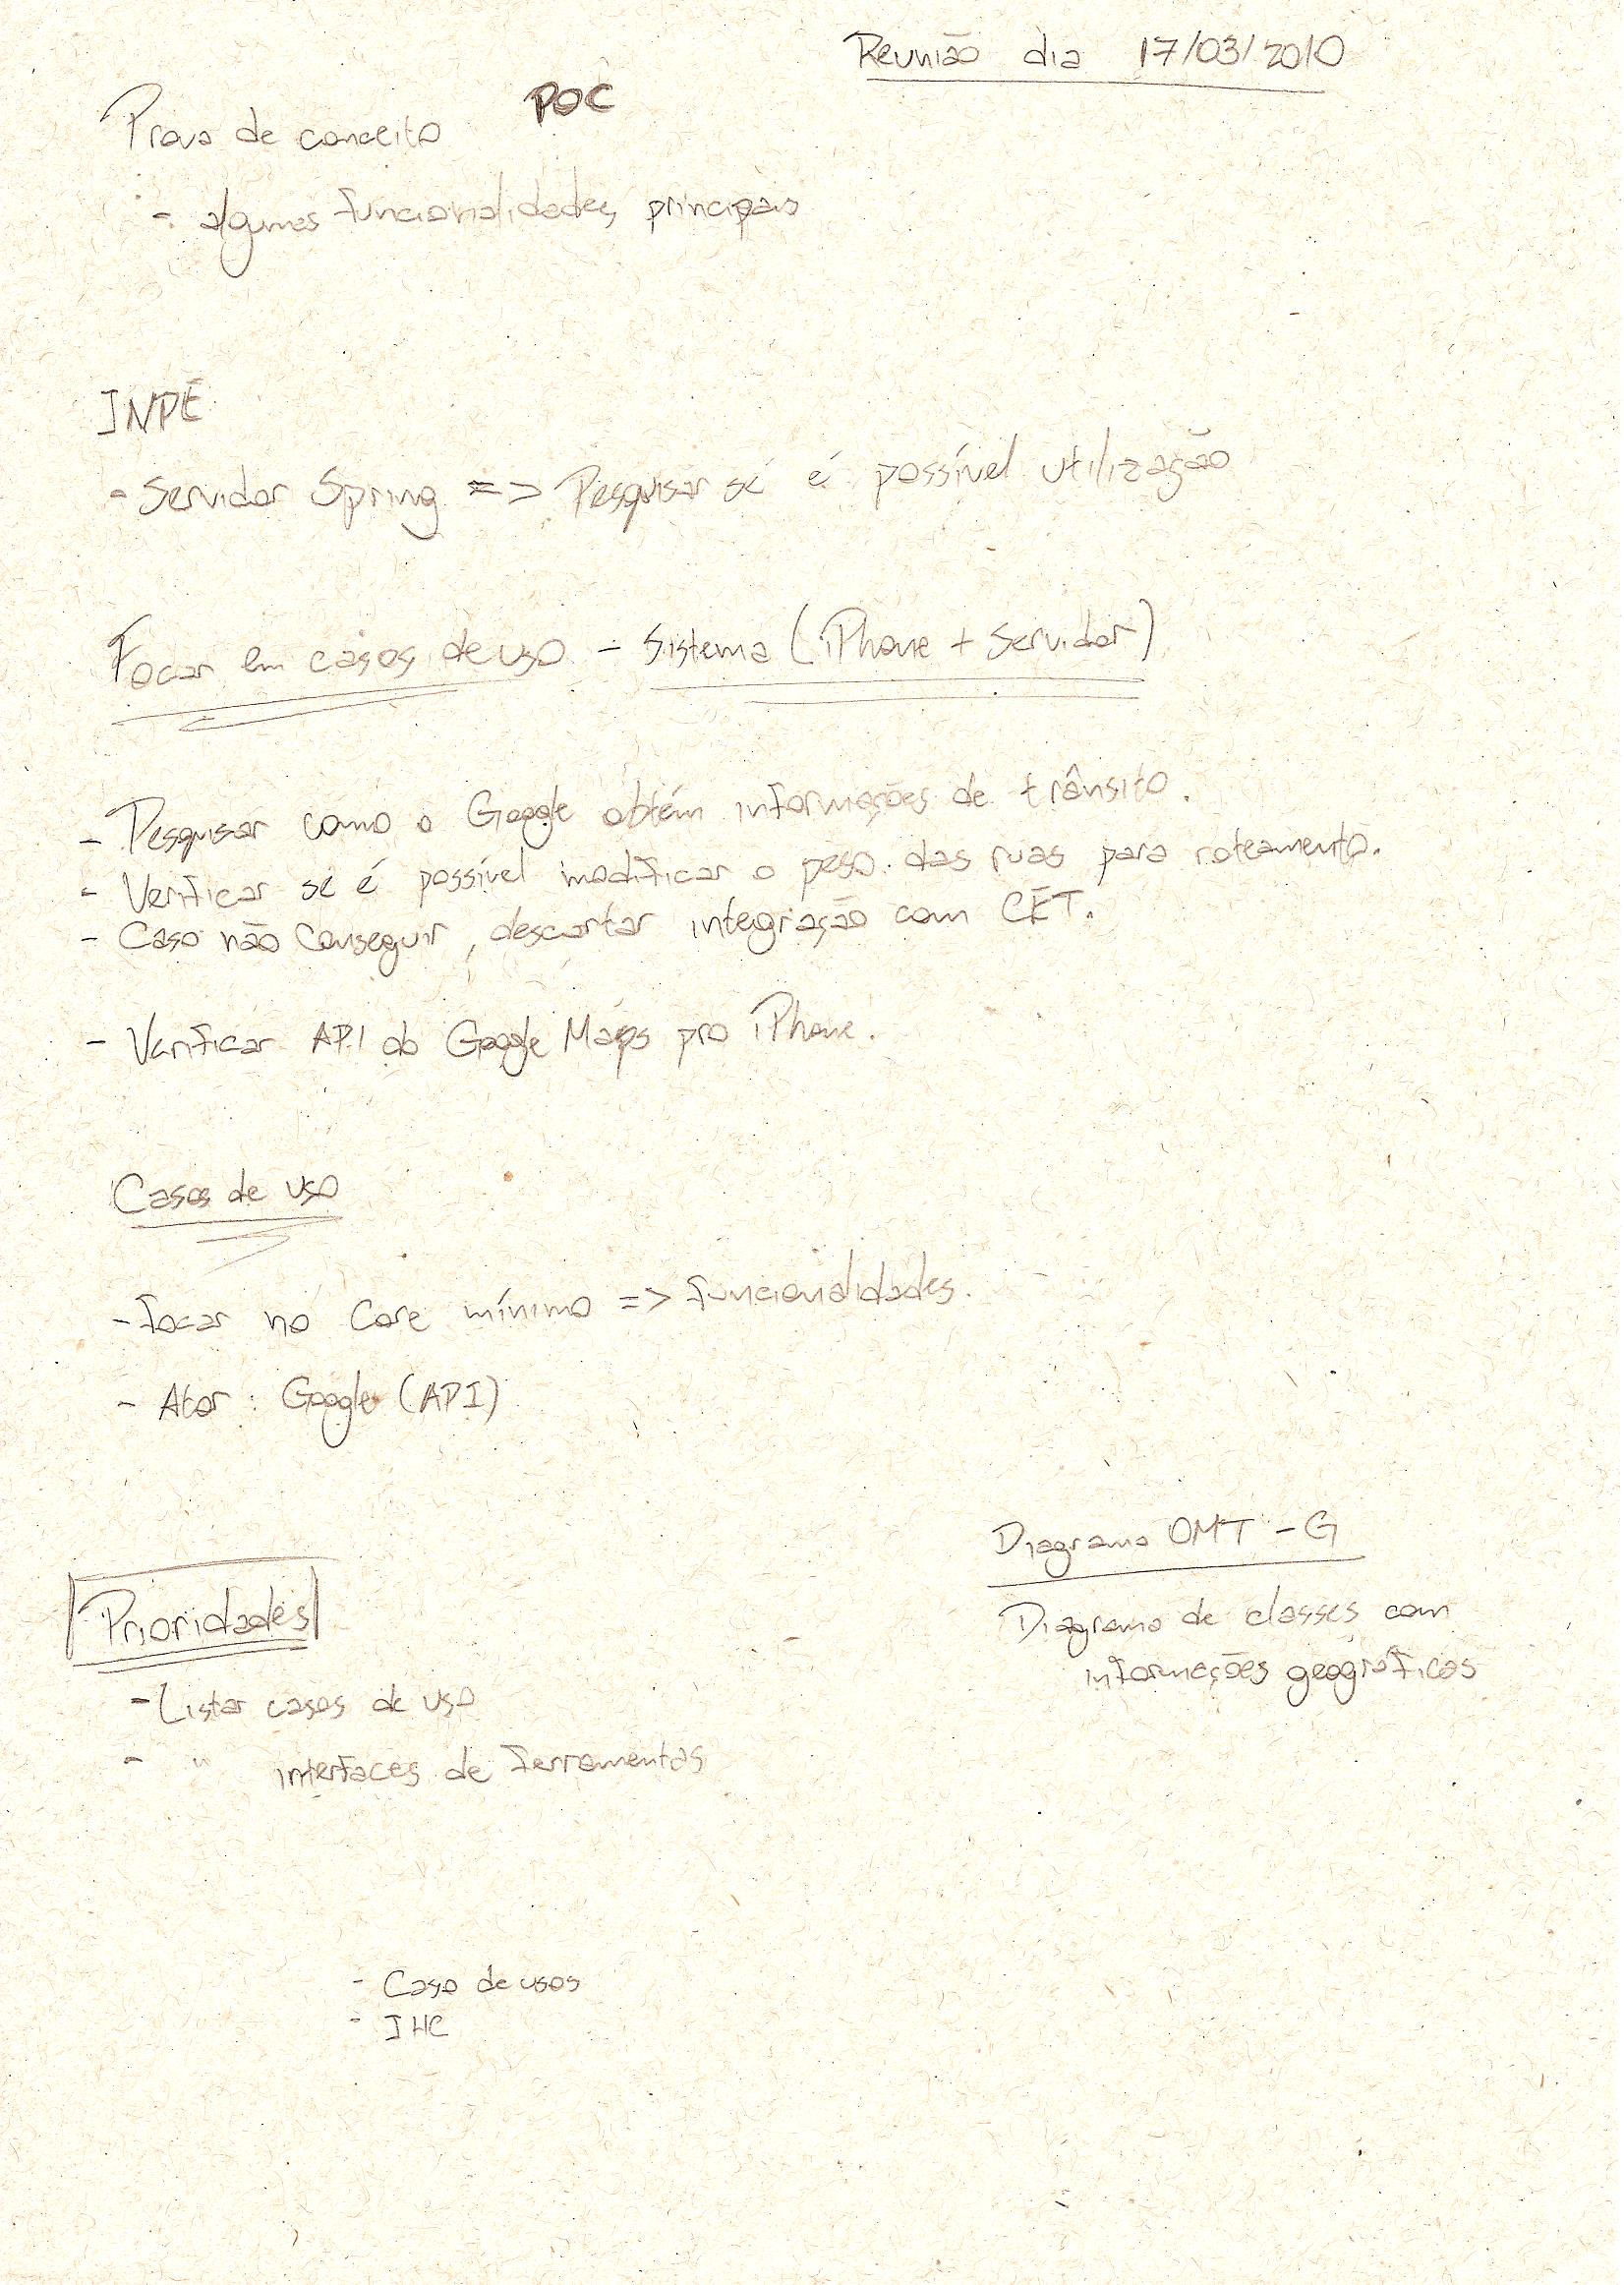 Reunião dia 17/03/2010
POC
Prova de conceito
- algumas funcionalidades principais
INPE
- Servidor Spring => Pesquisar se é possível utilização
Focar em casos de uso - Sistema (iPhone + Servidor)
- Pesquisar como o Google obtém informações de trânsito.
- Verificar se é possível modificar o peso das ruas para roteamento.
- Caso não conseguir, descartar integração com CET.
- Verificar API do Google Maps pro iPhone.
Casos de uso
- focar no core mínimo => funcionalidades.
- Ator: Google (API)
Diagrama OMT-G
Diagrama de classes com
informações geográficas
Prioridades
- Listar casos de uso
- " interfaces de ferramentas
- Caso de usos
- IHC